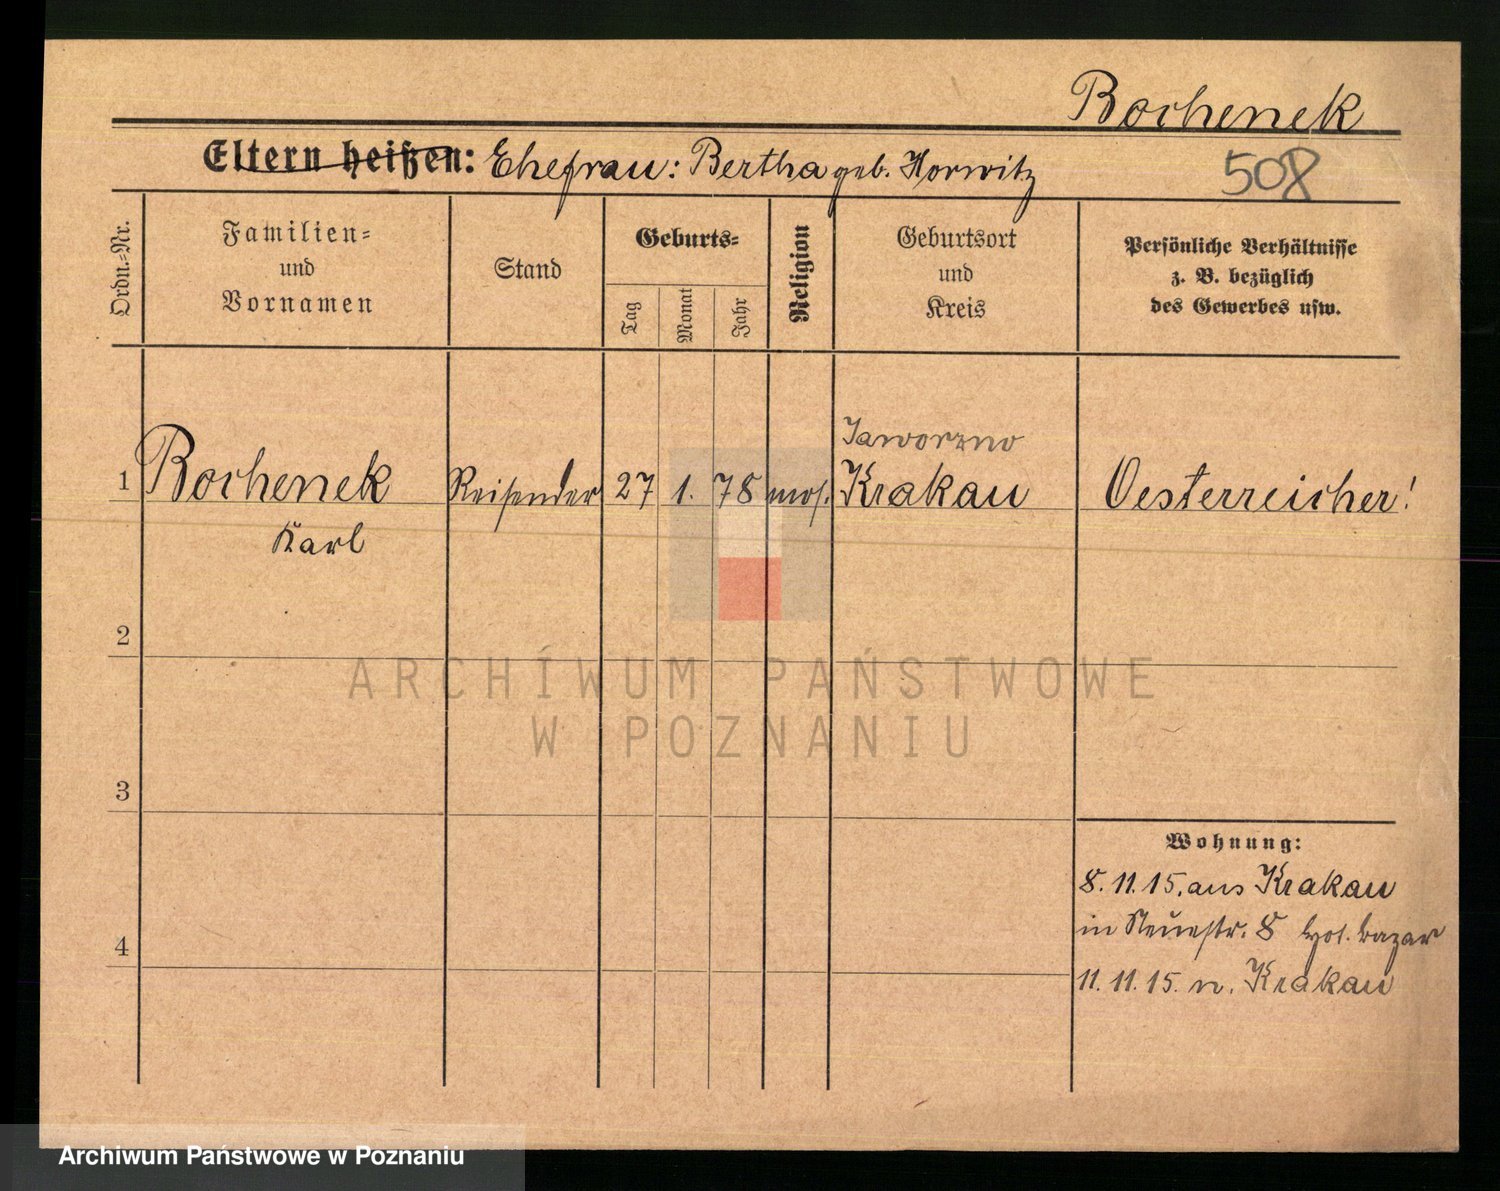 Bochenek
Eltern heißen: Ehefrau: Bertha geb. Horwitz
508
Ordn.-Nr.
Familien-
und
Vornamen
Stand
Geburts-
Tag
Monat
Jahr
Religion
Geburtsort
und
Kreis
Persönliche Verhältnisse
z. B. bezüglich
des Gewerbes usw.
Jaworzno
1 Bochenek Reisender 27 1. 78 mos. Krakau Oesterreicher!
Karl
2
ARCHIWUM PAŃSTWOWE
W POZNANIU
3
Wohnung:
8. 11. 15. aus Krakau
in Neuestr. 8 Hot. Bazar
4
11. 11. 15. n. Krakau
Archiwum Państwowe w Poznaniu